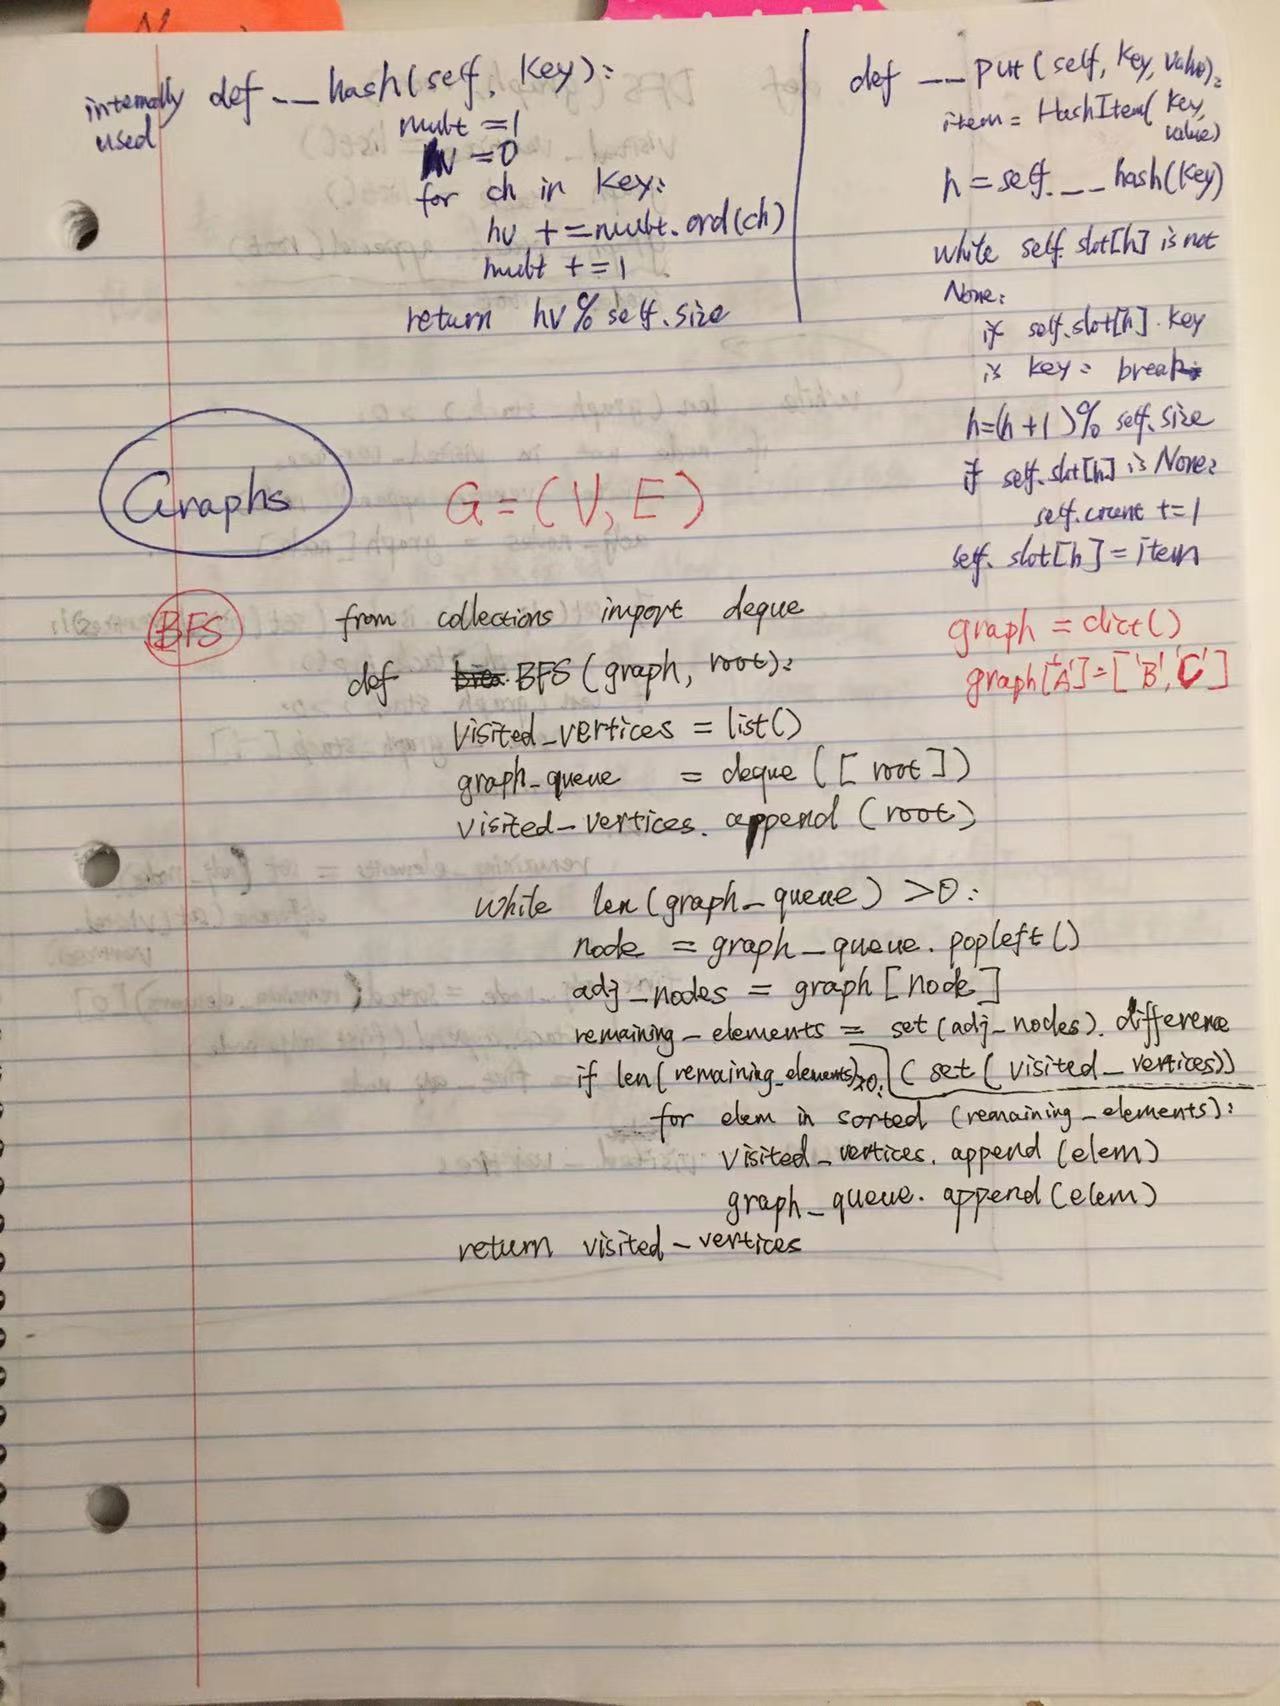 internally def __hash(self, key):
used
mult = 1
hv = 0
for ch in key:
hv += mult.ord(ch)
mult += 1
return hv % self.size
def __put(self, key, value):
item = HashItem(key,
value)
h = self.__hash(key)
while self.slot[h] is not
None:
if self.slot[h].key
is key: break
h=(h+1)% self.size
if self.slot[h] is None:
self.count +=1
self.slot[h] = item
Graphs G = (V, E)
graph = dict()
graph['A'] = ['B','C']
BFS from collections import deque
def BFS(graph, root):
visited_vertices = list()
graph_queue = deque([root])
visited_vertices.append(root)
while len(graph_queue) >0:
node = graph_queue.popleft()
adj_nodes = graph[node]
remaining_elements = set(adj_nodes).difference
(set(visited_vertices))
if len(remaining_elements)>0:
for elem in sorted (remaining_elements):
visited_vertices.append(elem)
graph_queue.append(elem)
return visited_vertices